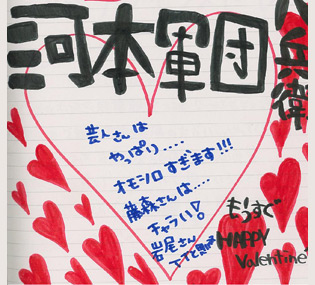 河本軍団
兵衛
芸人さんは
やっぱり....
オモシロすぎます!!!
藤森さんは....
チャラい!
岩尾さん
もうすぐ
HAPPY
Valentine